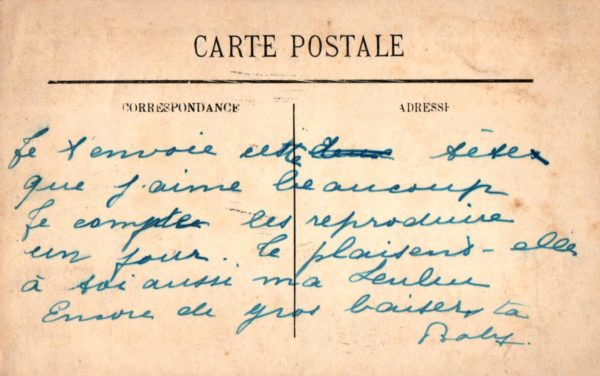 CARTE POSTALE
CORRESPONDANCE
ADRESSE
Je t'envoie cette têtes
que j'aime beaucoup
Je compte les reproduire
un jour. Te plaisent-elles
à toi aussi ma Leuleu
Encore de gros baisers ta
Baby.